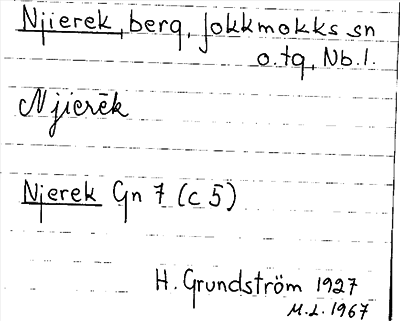 Njierek, berg, Jokkmokks sn
o. tg, Nb. l.
Njierēk
Njerek Gn 7 (c 5)
H. Grundström 1927
M.L. 1967